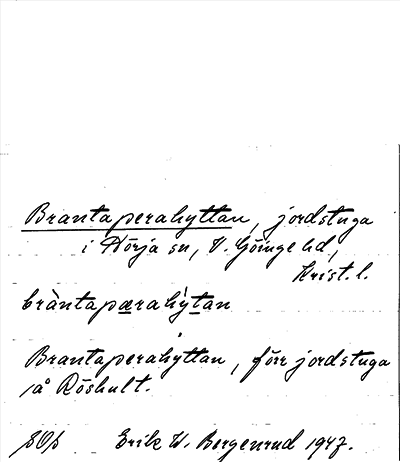 Brantaperahyttan, jordstuga
i Hörja sn, V. Göinge hd,
Krist. l.
bràntapærahỳtan
Brantaperahyttan, förr jordstuga
på Röshult.
SOS Erik W. Bergenrud 1947.